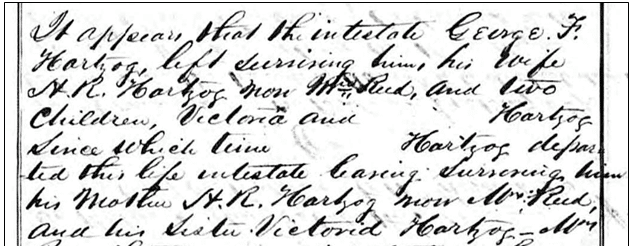 It appears that the intestate George. F.
Hartzog, left surviving him, his wife
H. R. Hartzog now Mrs Reed, and two
Children, Victoria and Hartzog
since which time Hartzog depar-
-ted this life intestate leaving surviving him
his Mother H. R. Hartzog now Mrs. Reed,
and his Sister Victoria Hartzog – Mrs